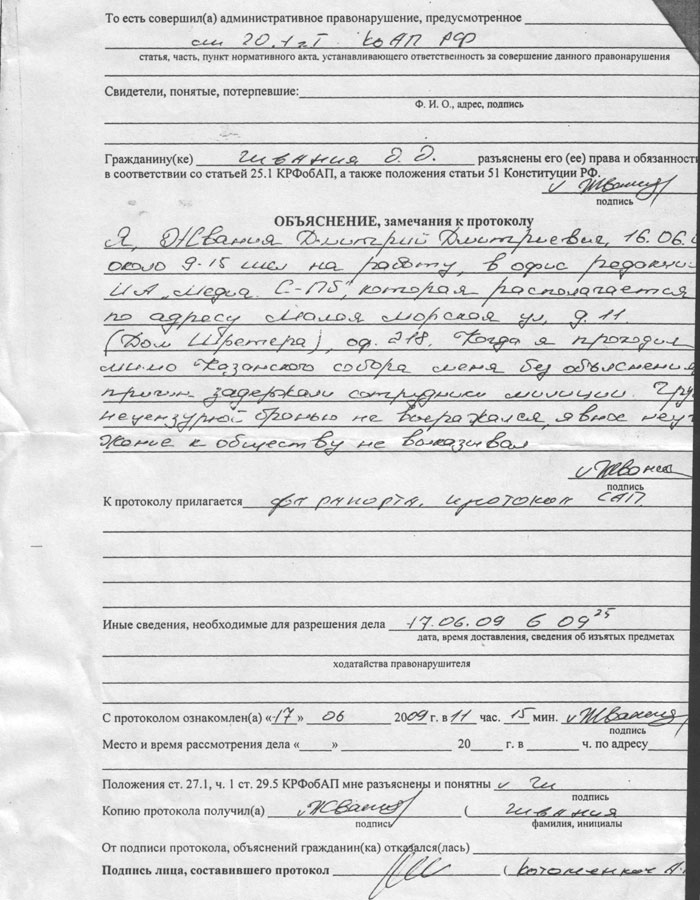 То есть совершил(а) административное правонарушение, предусмотренное
ст 20.1 ч.1 КоАП РФ
статья, часть, пункт нормативного акта, устанавливающего ответственность за совершение данного правонарушения
Свидетели, понятые, потерпевшие:
Ф. И. О., адрес, подпись
Гражданину(ке) Жвания Д. Д. разъяснены его (ее) права и обязанност
в соответствии со статьей 25.1 КРФобАП, а также положения статьи 51 Конституции РФ.
подпись
ОБЪЯСНЕНИЕ, замечания к протоколу
Я, Жвания Дмитрий Дмитриевич, 16.06.
около 9-15 шел на работу, в офис редакци
ИА „Медиа. С-Пб", которая располагается
по адресу Малая Морская ул, д. 11
(Дом Шретера), оф. 218. Когда я проходил
мимо Казанского собора меня без объяснения
причин задержали сотрудники милиции. Гру
нецензурной бранью не выражался, явное неу
жание к обществу не выказывал
подпись
К протоколу прилагается рапорта, протокол САП
Иные сведения, необходимые для разрешения дела 17.06.09 в 09 25
дата, время доставления, сведения об изъятых предметах
ходатайства правонарушителя
С протоколом ознакомлен(а) «17» 06 2009 г. в 11 час. 15 мин. Жвания
подпись
Место и время рассмотрения дела «     »      20     г. в      ч. по адресу
Положения ст. 27.1, ч. 1 ст. 29.5 КРФобАП мне разъяснены и понятны
подпись
Копию протокола получил(а) Жвания ( Жвания
подпись фамилия, инициалы
От подписи протокола, объяснений гражданин(ка) отказался(лась)
Подпись лица, составившего протокол (